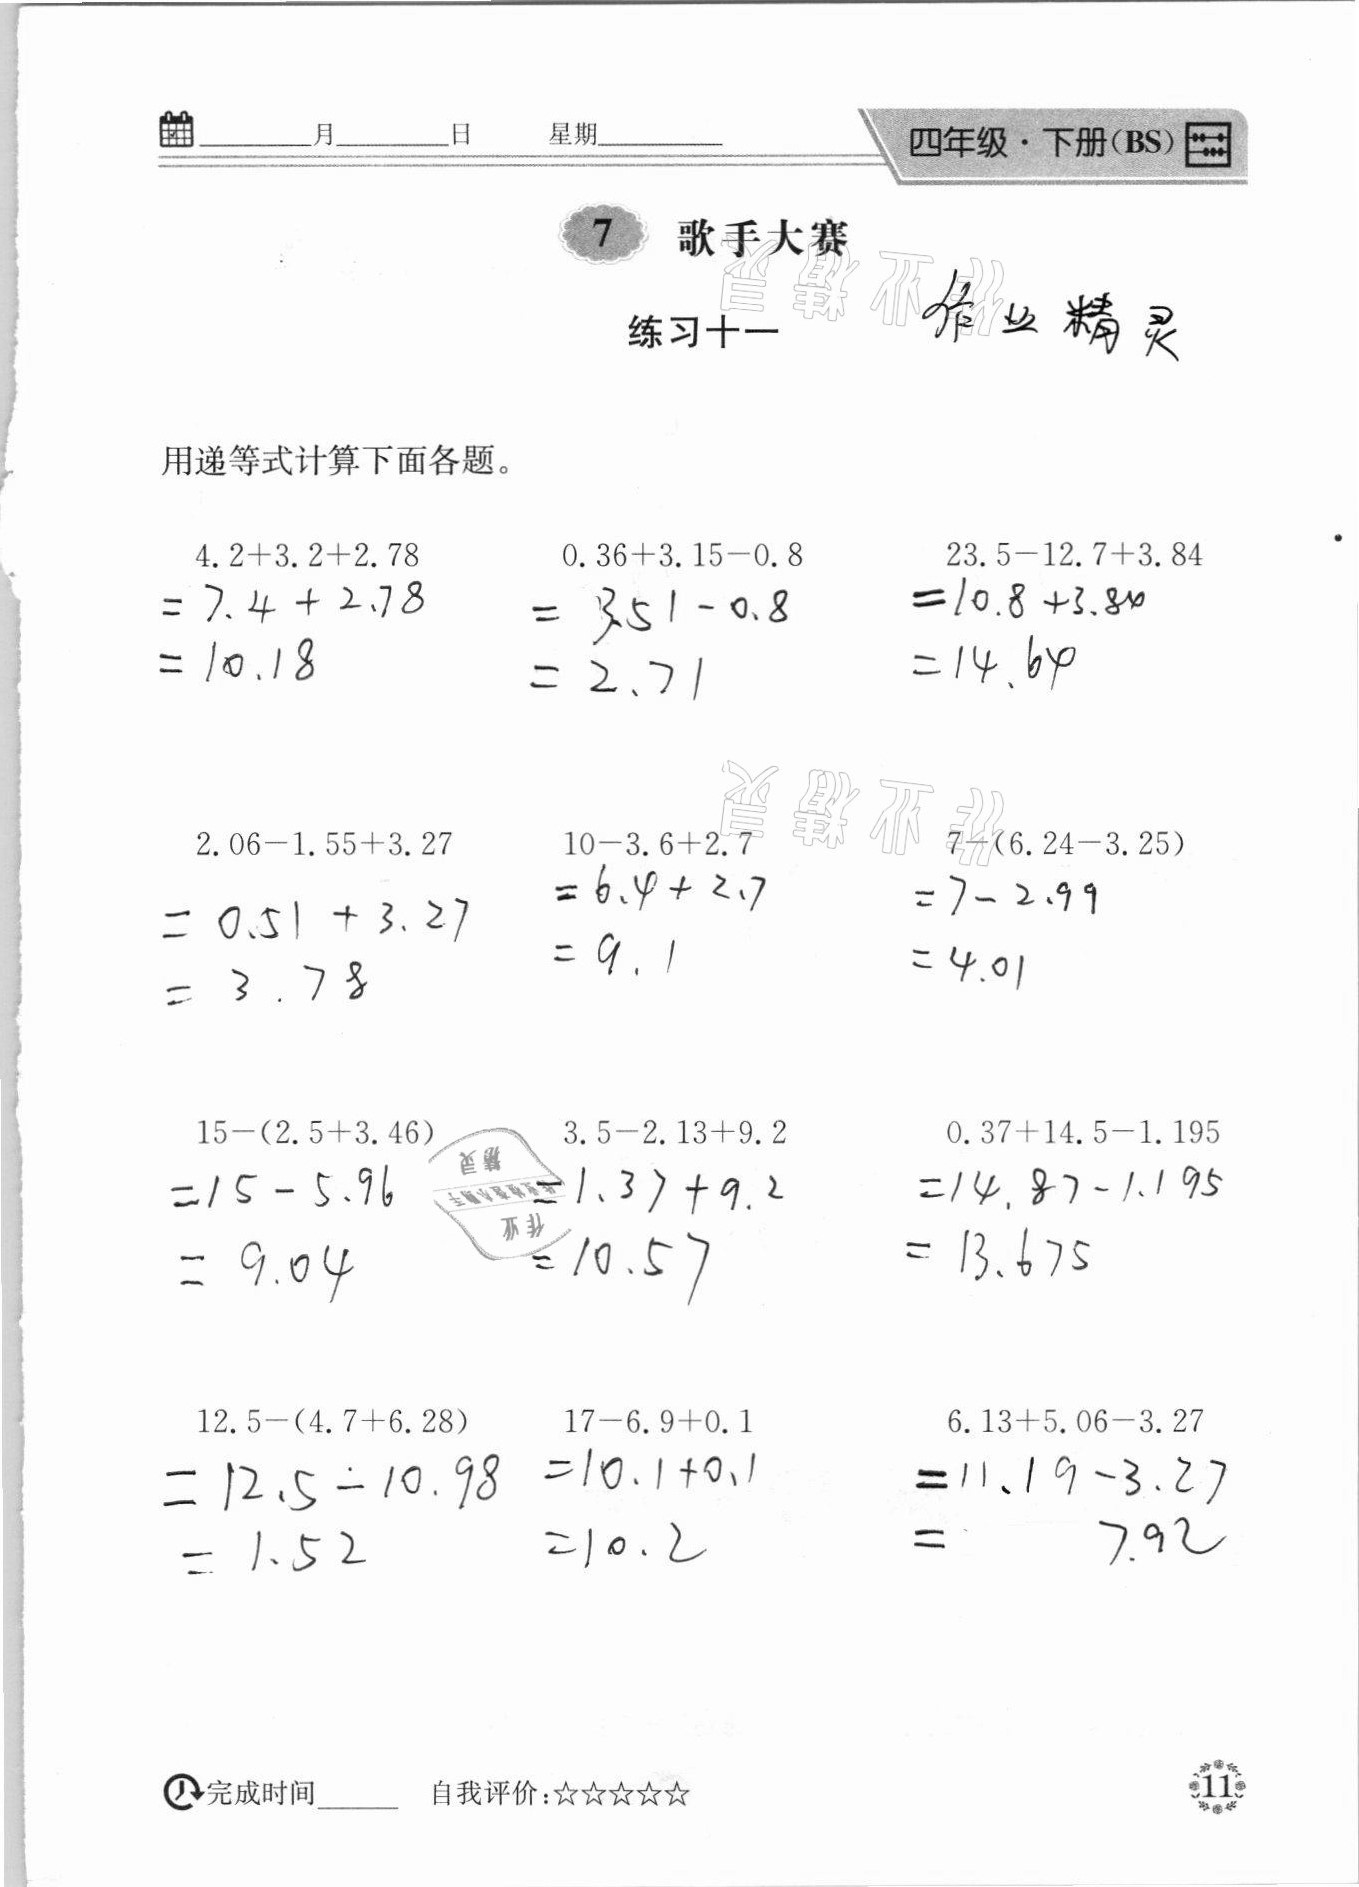 ____月____日 星期____
四年级·下册(BS)
7 歌手大赛
作业精灵
练习十一
作业精灵
用递等式计算下面各题。
4.2+3.2+2.78 0.36+3.15-0.8 23.5-12.7+3.84
=7.4+2.78 =3.51-0.8 =10.8+3.84
=10.18 =2.71 =14.64
作业精灵
2.06-1.55+3.27 10-3.6+2.7 7-(6.24-3.25)
=0.51+3.27 =6.4+2.7 =7-2.99
=3.78 =9.1 =4.01
15-(2.5+3.46) 3.5-2.13+9.2 0.37+14.5-1.195
=15-5.96 =1.37+9.2 =14.87-1.195
=9.04 =10.57 =13.675
精灵
作业
12.5-(4.7+6.28) 17-6.9+0.1 6.13+5.06-3.27
=12.5-10.98 =10.1+0.1 =11.19-3.27
=1.52 =10.2 = 7.92
完成时间____ 自我评价:☆☆☆☆☆
11